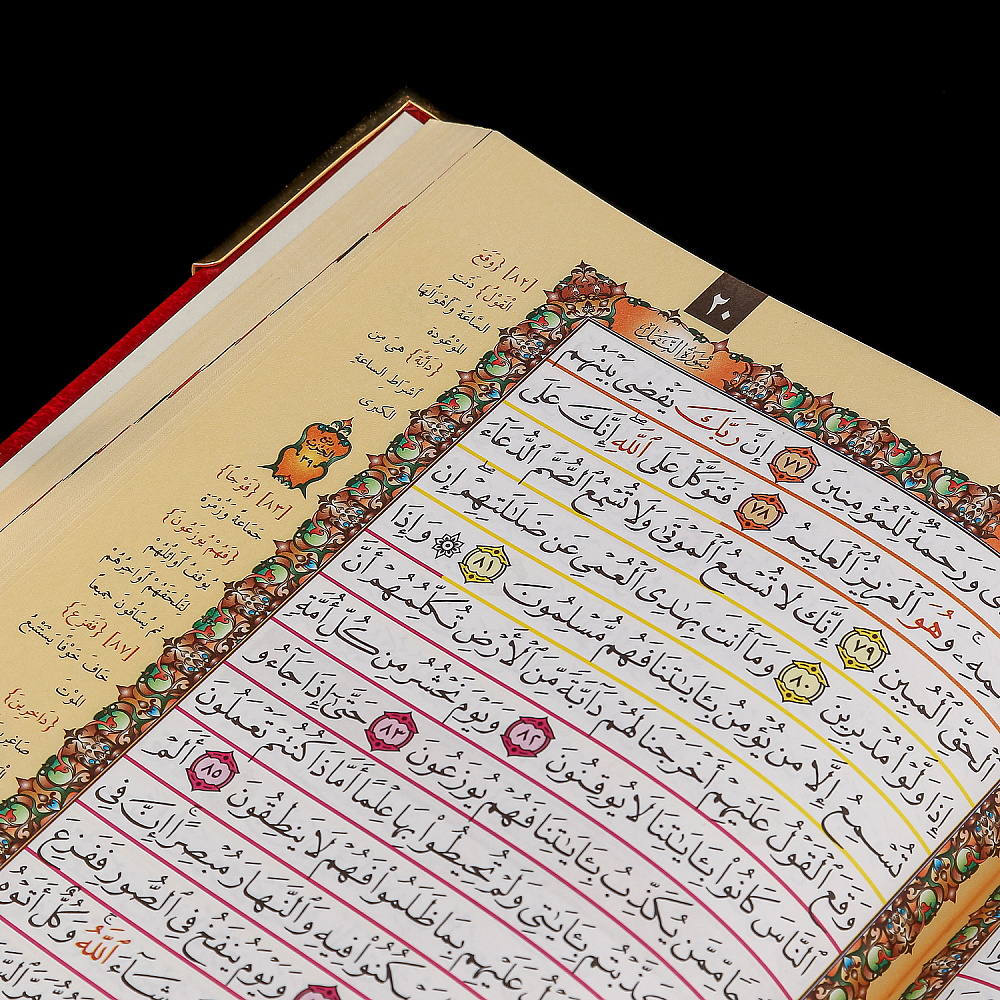 ٢٠
سُورَةُ النَّمْل
وَرَحْمَةٌ لِّلْمُؤْمِنِينَ ٧٧ إِنَّ رَبَّكَ يَقْضِى بَيْنَهُم
وَهُوَ ٱلْعَزِيزُ ٱلْعَلِيمُ ٧٨ فَتَوَكَّلْ عَلَى ٱللَّهِ إِنَّكَ عَلَى
ٱلْحَقِّ ٱلْمُبِينِ ٧٩ إِنَّكَ لَا تُسْمِعُ ٱلْمَوْتَىٰ وَلَا تُسْمِعُ ٱلصُّمَّ ٱلدُّعَآءَ
إِذَا وَلَّوْا۟ مُدْبِرِينَ ٨٠ وَمَآ أَنتَ بِهَٰدِى ٱلْعُمْىِ عَن ضَلَٰلَتِهِمْ إِن
تُسْمِعُ إِلَّا مَن يُؤْمِنُ بِـَٔايَٰتِنَا فَهُم مُّسْلِمُونَ ٨١ وَإِذَا
وَقَعَ ٱلْقَوْلُ عَلَيْهِمْ أَخْرَجْنَا لَهُمْ دَآبَّةً مِّنَ ٱلْأَرْضِ تُكَلِّمُهُمْ أَنَّ
ٱلنَّاسَ كَانُوا۟ بِـَٔايَٰتِنَا لَا يُوقِنُونَ ٨٢ وَيَوْمَ نَحْشُرُ مِن كُلِّ أُمَّةٍ
مِّمَّن يُكَذِّبُ بِـَٔايَٰتِنَا فَهُمْ يُوزَعُونَ ٨٣ حَتَّىٰٓ إِذَا جَآءُو
بِـَٔايَٰتِى وَلَمْ تُحِيطُوا۟ بِهَا عِلْمًا أَمَّاذَا كُنتُمْ تَعْمَلُونَ
عَلَيْهِم بِمَا ظَلَمُوا۟ فَهُمْ لَا يَنطِقُونَ ٨٥ أَلَمْ
فِيهِ وَٱلنَّهَارَ مُبْصِرًا إِنَّ فِى
وَيَوْمَ يُنفَخُ فِى ٱلصُّورِ فَفَزِعَ
شَآءَ ٱللَّهُ وَكُلٌّ أَتَوْهُ
[٨٢] {وَقَعَ
القَوْلُ} دَنَت
السَّاعَةُ وَأَهْوَالُهَا
المَوْعُودَة
{دَابَّة} هِيَ مِن
أشراط الساعة
الكبرى
[٨٣] {فَوْجًا}
جَمَاعَةً وَزُمْرَة
{فَهُمْ يُوزَعُونَ}
يُوقَفُ أَوَائِلُهُمْ
لِتَلْحَقَهُمْ أَوَاخِرُهُمْ
ثم يُسَاقُونَ جَمِيعًا
[٨٧] {فَفَزِعَ}
خَافَ خَوْفًا يَسْتَتْبِعُ
المَوْت
{دَاخِرِينَ}